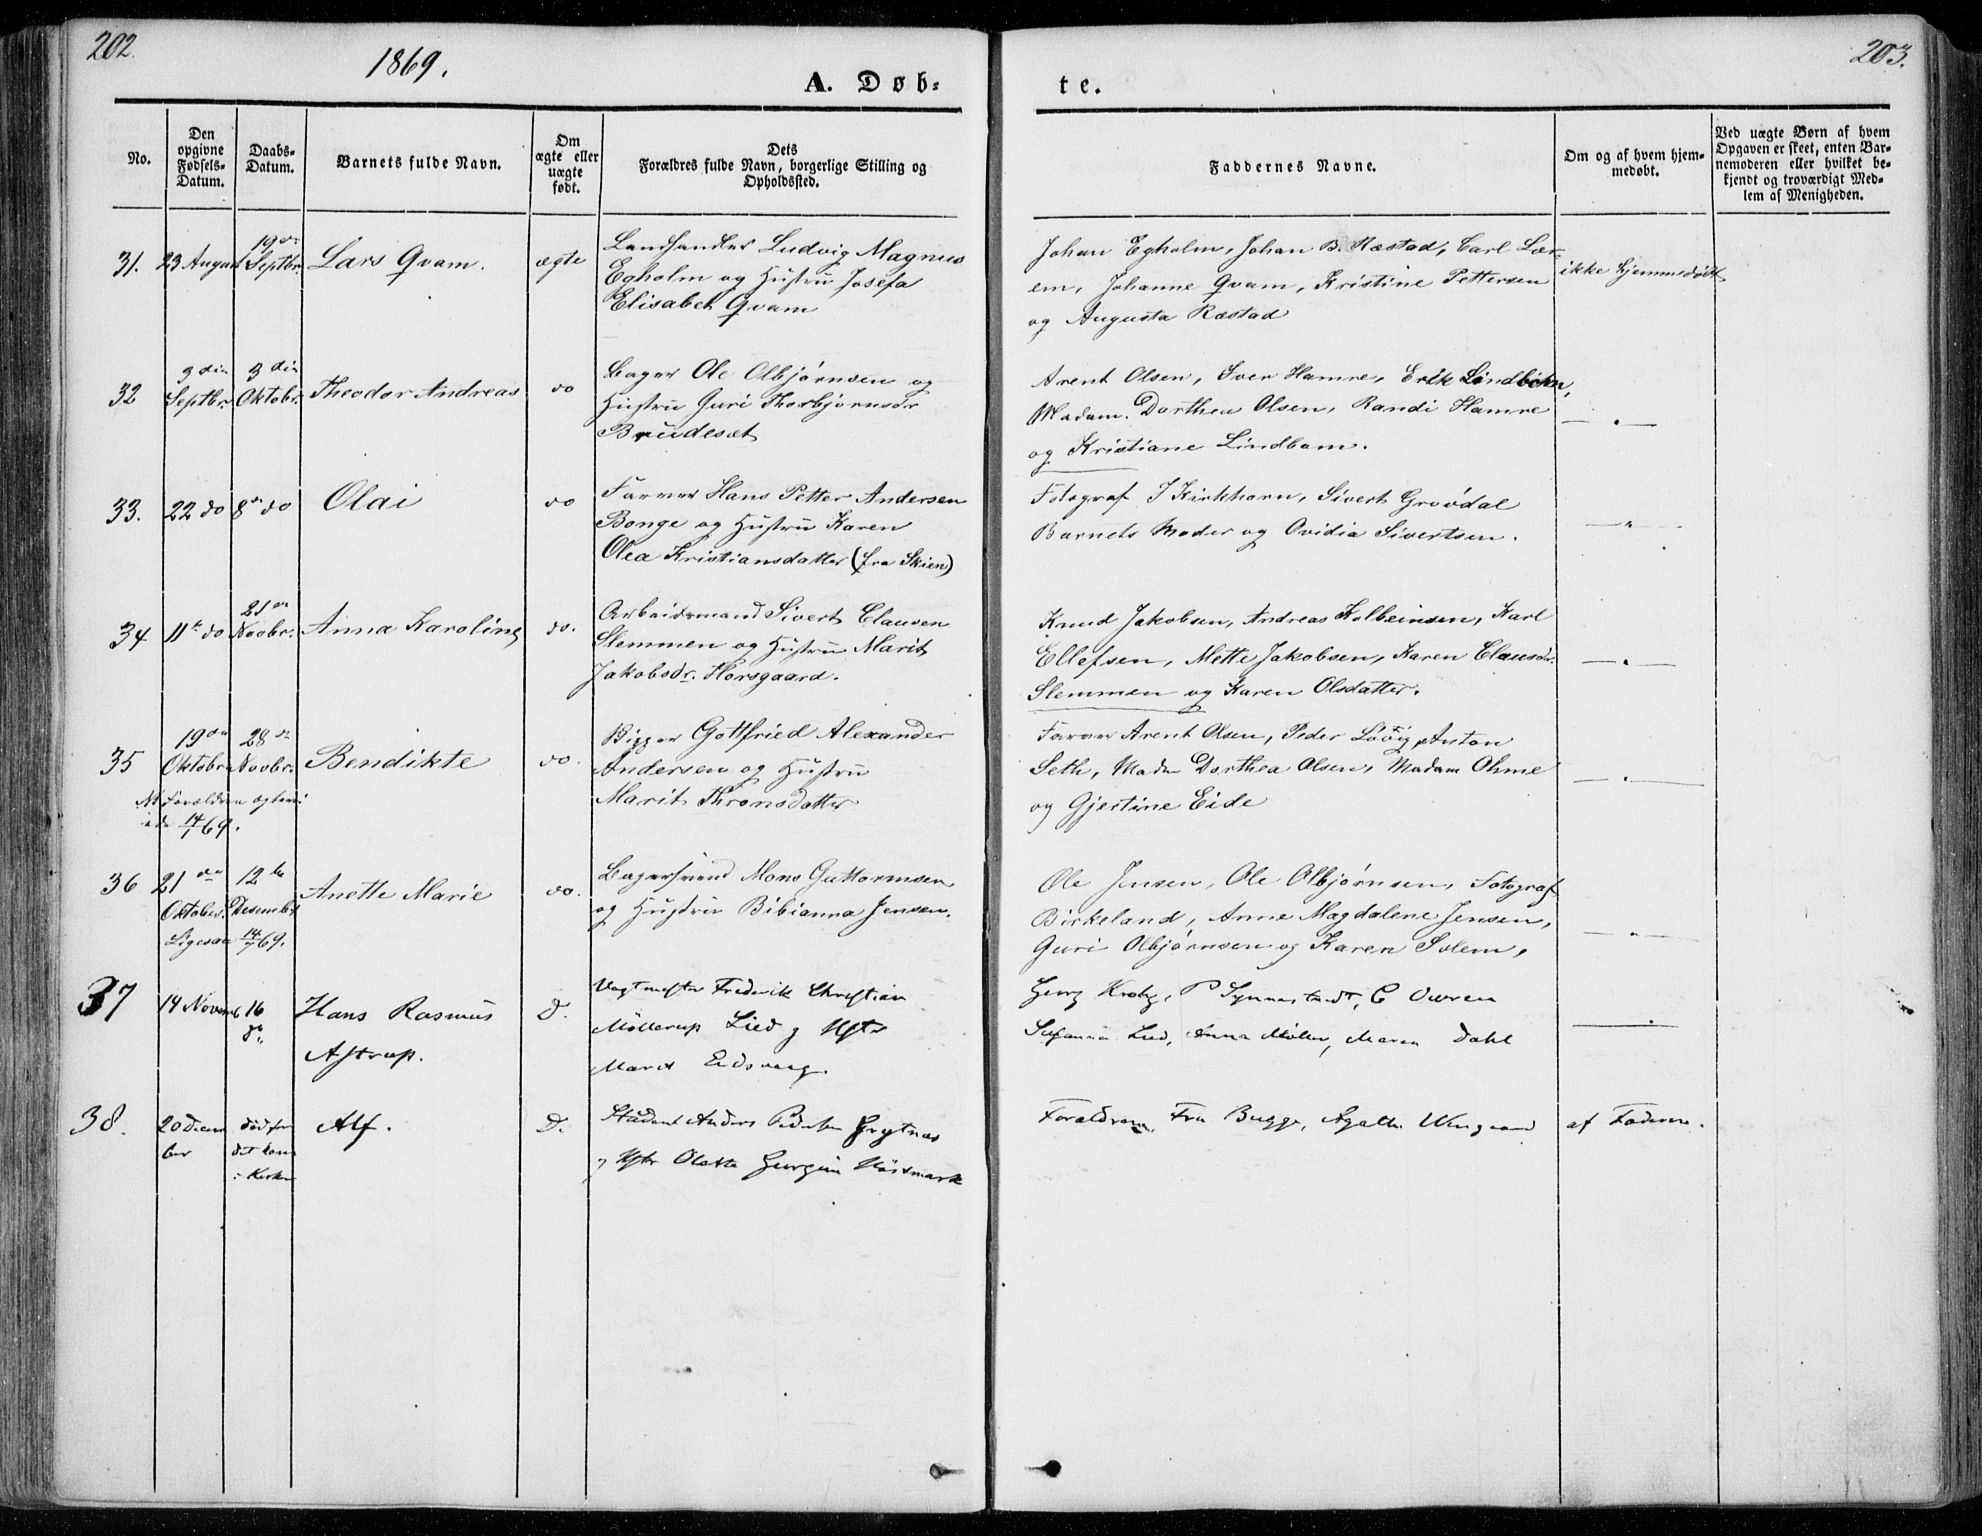 202.
1869.
A. Døb-
te.
203.
No.
Den
opgivne
Fødsels-
Datum.
Daabs-
Datum.
Barnets fulde Navn.
Om
ægte eller
uægte
født.
Dets
Forældres fulde Navn, borgerlige Stilling og
Opholdssted.
Faddernes Navne.
Om og af hvem hjem-
medøbt.
Ved uægte Børn af hvem
Opgaven er skeet, enten Bar-
nemoderen eller hvilket be-
kjendt og troværdigt Med-
lem af Menigheden.
31.
23 August
19de
Septbr.
Lars Qvam.
ægte
Landhandler Ludvig Magnus
Egholm og Hustru Josefa
Elisabet Qvam
Johan Egholm, Johan B. Ræstad, Carl Lær-
em, Johanne Qvam, Kristine Pettersen
og Augusta Ræstad
ikke hjemmedøbt
32
3die
Septbr.
3die
Oktobr.
Theodor Andreas
do
Bager Ole Olbjørnsen og
Hustru Guri Thorbjørnsdr
Brudeset
Arent Olsen, Iver Hamre, Erik Lindbom,
Madam. Dorthea Olsen, Randi Hamre
og Kristiane Lindbom.
33.
22 do
8de do
Olai
do
Farver Hans Petter Andersen
Bonge og Hustru Karen
Olea Kristiansdatter (fra Skien)
Fotograf J Kirkhorn, Sivert Grovdal
Barnets Moder og Ovidia Sivertsen.
34
11te do
21de
Novbr.
Anna Karoline
do.
Arbeidsmand Sivert Clausen
Slemmen og Hustru Marit
Jakobsdr. Horsgaard.
Knud Jakobsen, Andreas Kolbeinsen, Karl
Ellefsen, Mette Jakobsen, Karen Clausdr.
Slemmen og Karen Olsdatter.
35
19de
Oktobr.
28de
Novbr.
Bendikte
do.
Gottfried Alexander
Andersen og Hustru
Marit Thronsdatter
Farver Arent Olsen, Peder Løvig, Anton
Seth, Mad Dorthea Olsen, Madam Ohme
og Gjertine Eide
NB Forældren
14/7 69.
36
21de
Oktober.
12te
Desember
Anette Marie
do.
Bagersvend Mons Guttormsen
og Hustru Bibianna Jensen.
Ole Jensen, Ole Olbjørnsen, Fotograf
Birkeland, Anne Magdalene Jensen,
Guri Olbjørnsen og Karen Solem.
Ligesaa 14/7 69.
37
14 Novemb
16
Hans Rasmus
Astrup.
d.
Vagtmester Frederik Christian
Möllerup Lied og Hstr
Marit Eidsvaag.
Georg Krohg, P Synnestvedt, C Owren
Susanna Lied, Anna Møller, Maren Dahl
38.
20 Decem
ber
død før
det kom
i Kirken
Alf.
D.
Student Anders Pedersen Grytnæs
og Hstr Oletta Georgine Høismark
Forældrene, Fru Bugge, Agathe Wingaard
af Faderen.